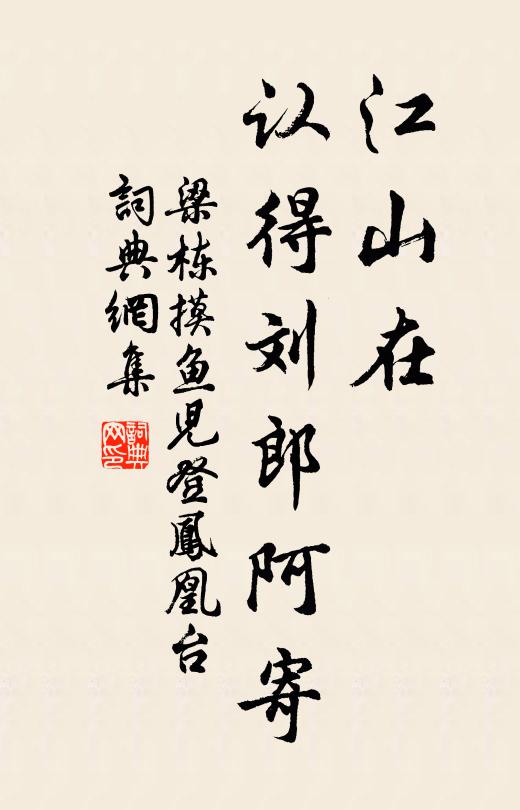 江山在
认得刘郎阿寄
梁栋摸鱼儿登鳳凰台
詞典網集
詞典网印